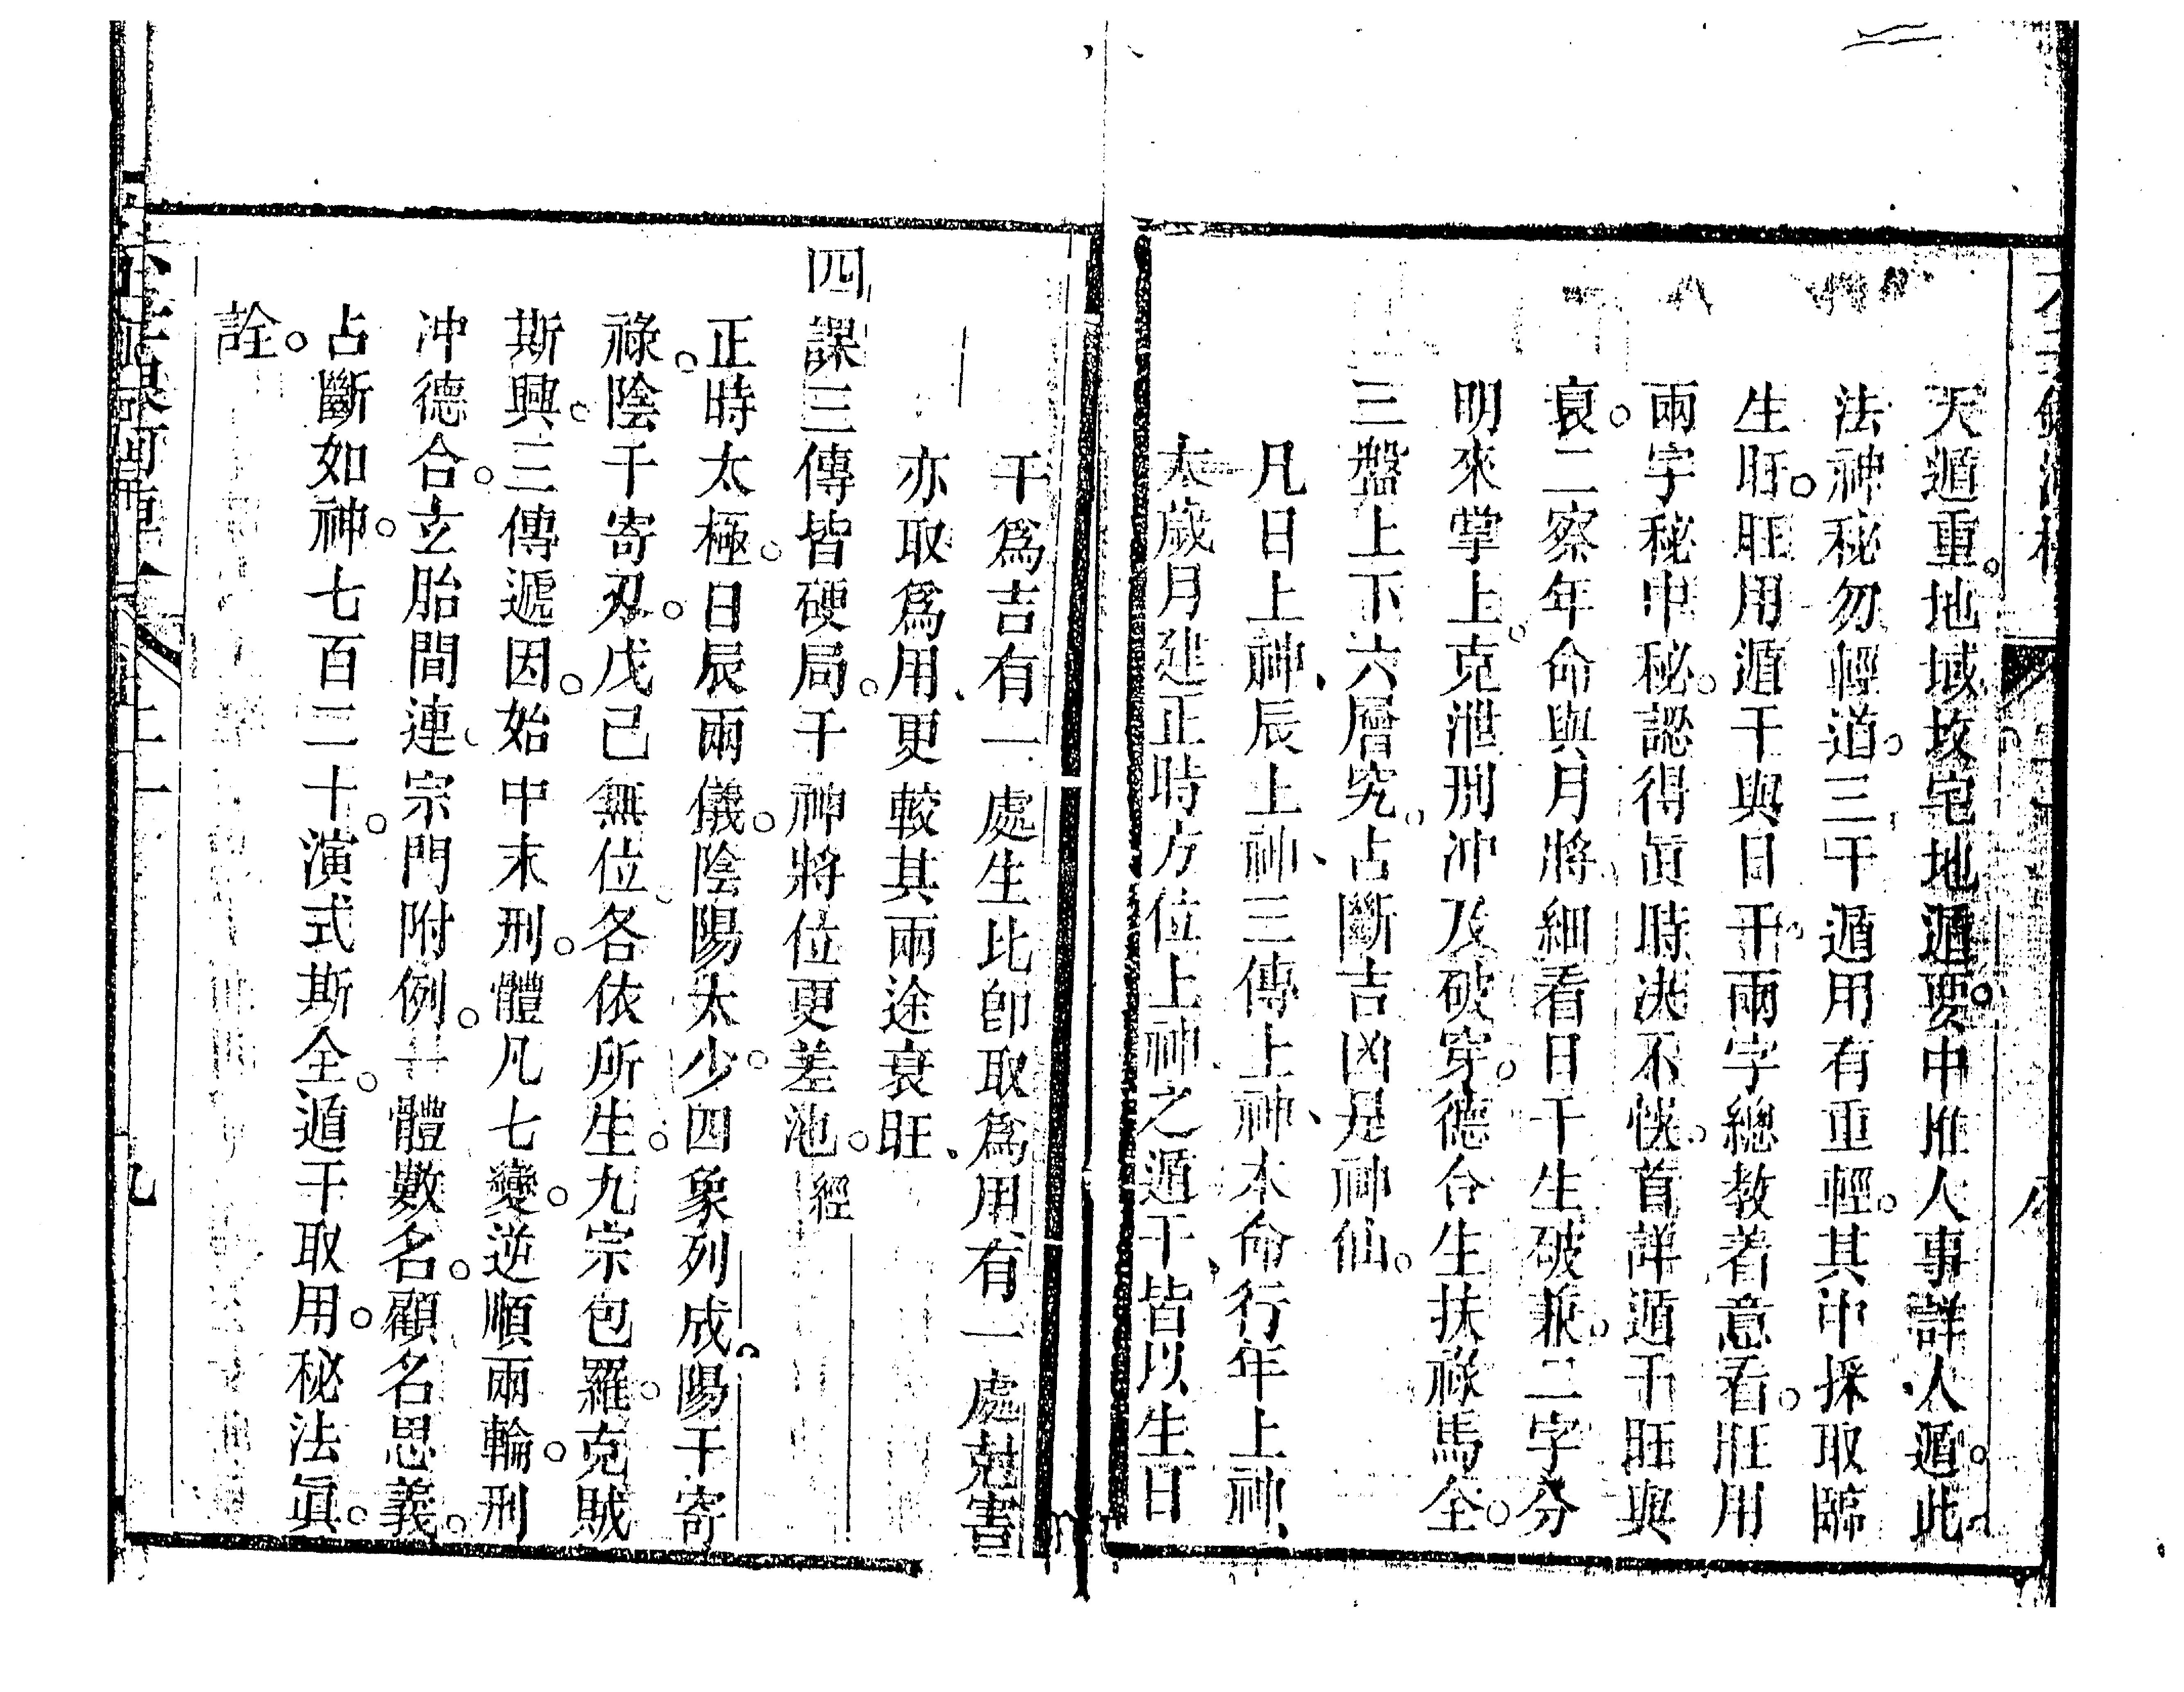 天遁重。地域故宅地遁要。中推人事詳人遁。此
法神秘勿輕道。三干遁用有重輕。其中採取臨
生旺。旺用遁干與日干。兩字總教着意看。旺用
兩字秘中秘。認得眞時決不恍。首詳遁干旺與
衰。二察年命與月將。細看日干生破兼。二字分
明來掌上。克泄刑冲及破穿。德合生扶祿馬全。
三盤上下六層究。占斷吉凶是神仙。
凡日上神、辰上神、三傳上神、本命行年上神、
太歲月建正時方位上神之遁干、皆以生日
干爲吉有一處生比卽取爲用、有一處尅害
亦取爲用、更較其兩途衰旺、
四課三傳皆硬局。干神將位更差池。經
正時太極。日辰兩儀。陰陽太少。四象列成。陽干寄
祿。陰干寄刃。戊己無位。各依所生。九宗包羅。克賊
斯興。三傳遞因。始中末刑。體凡七變。逆順兩輪。刑
冲德合。玄胎間連。宗門附例。一體數名。顧名思義。
占斷如神。七百二十。演式斯全。遁干取用。秘法眞。
詮。
八
九